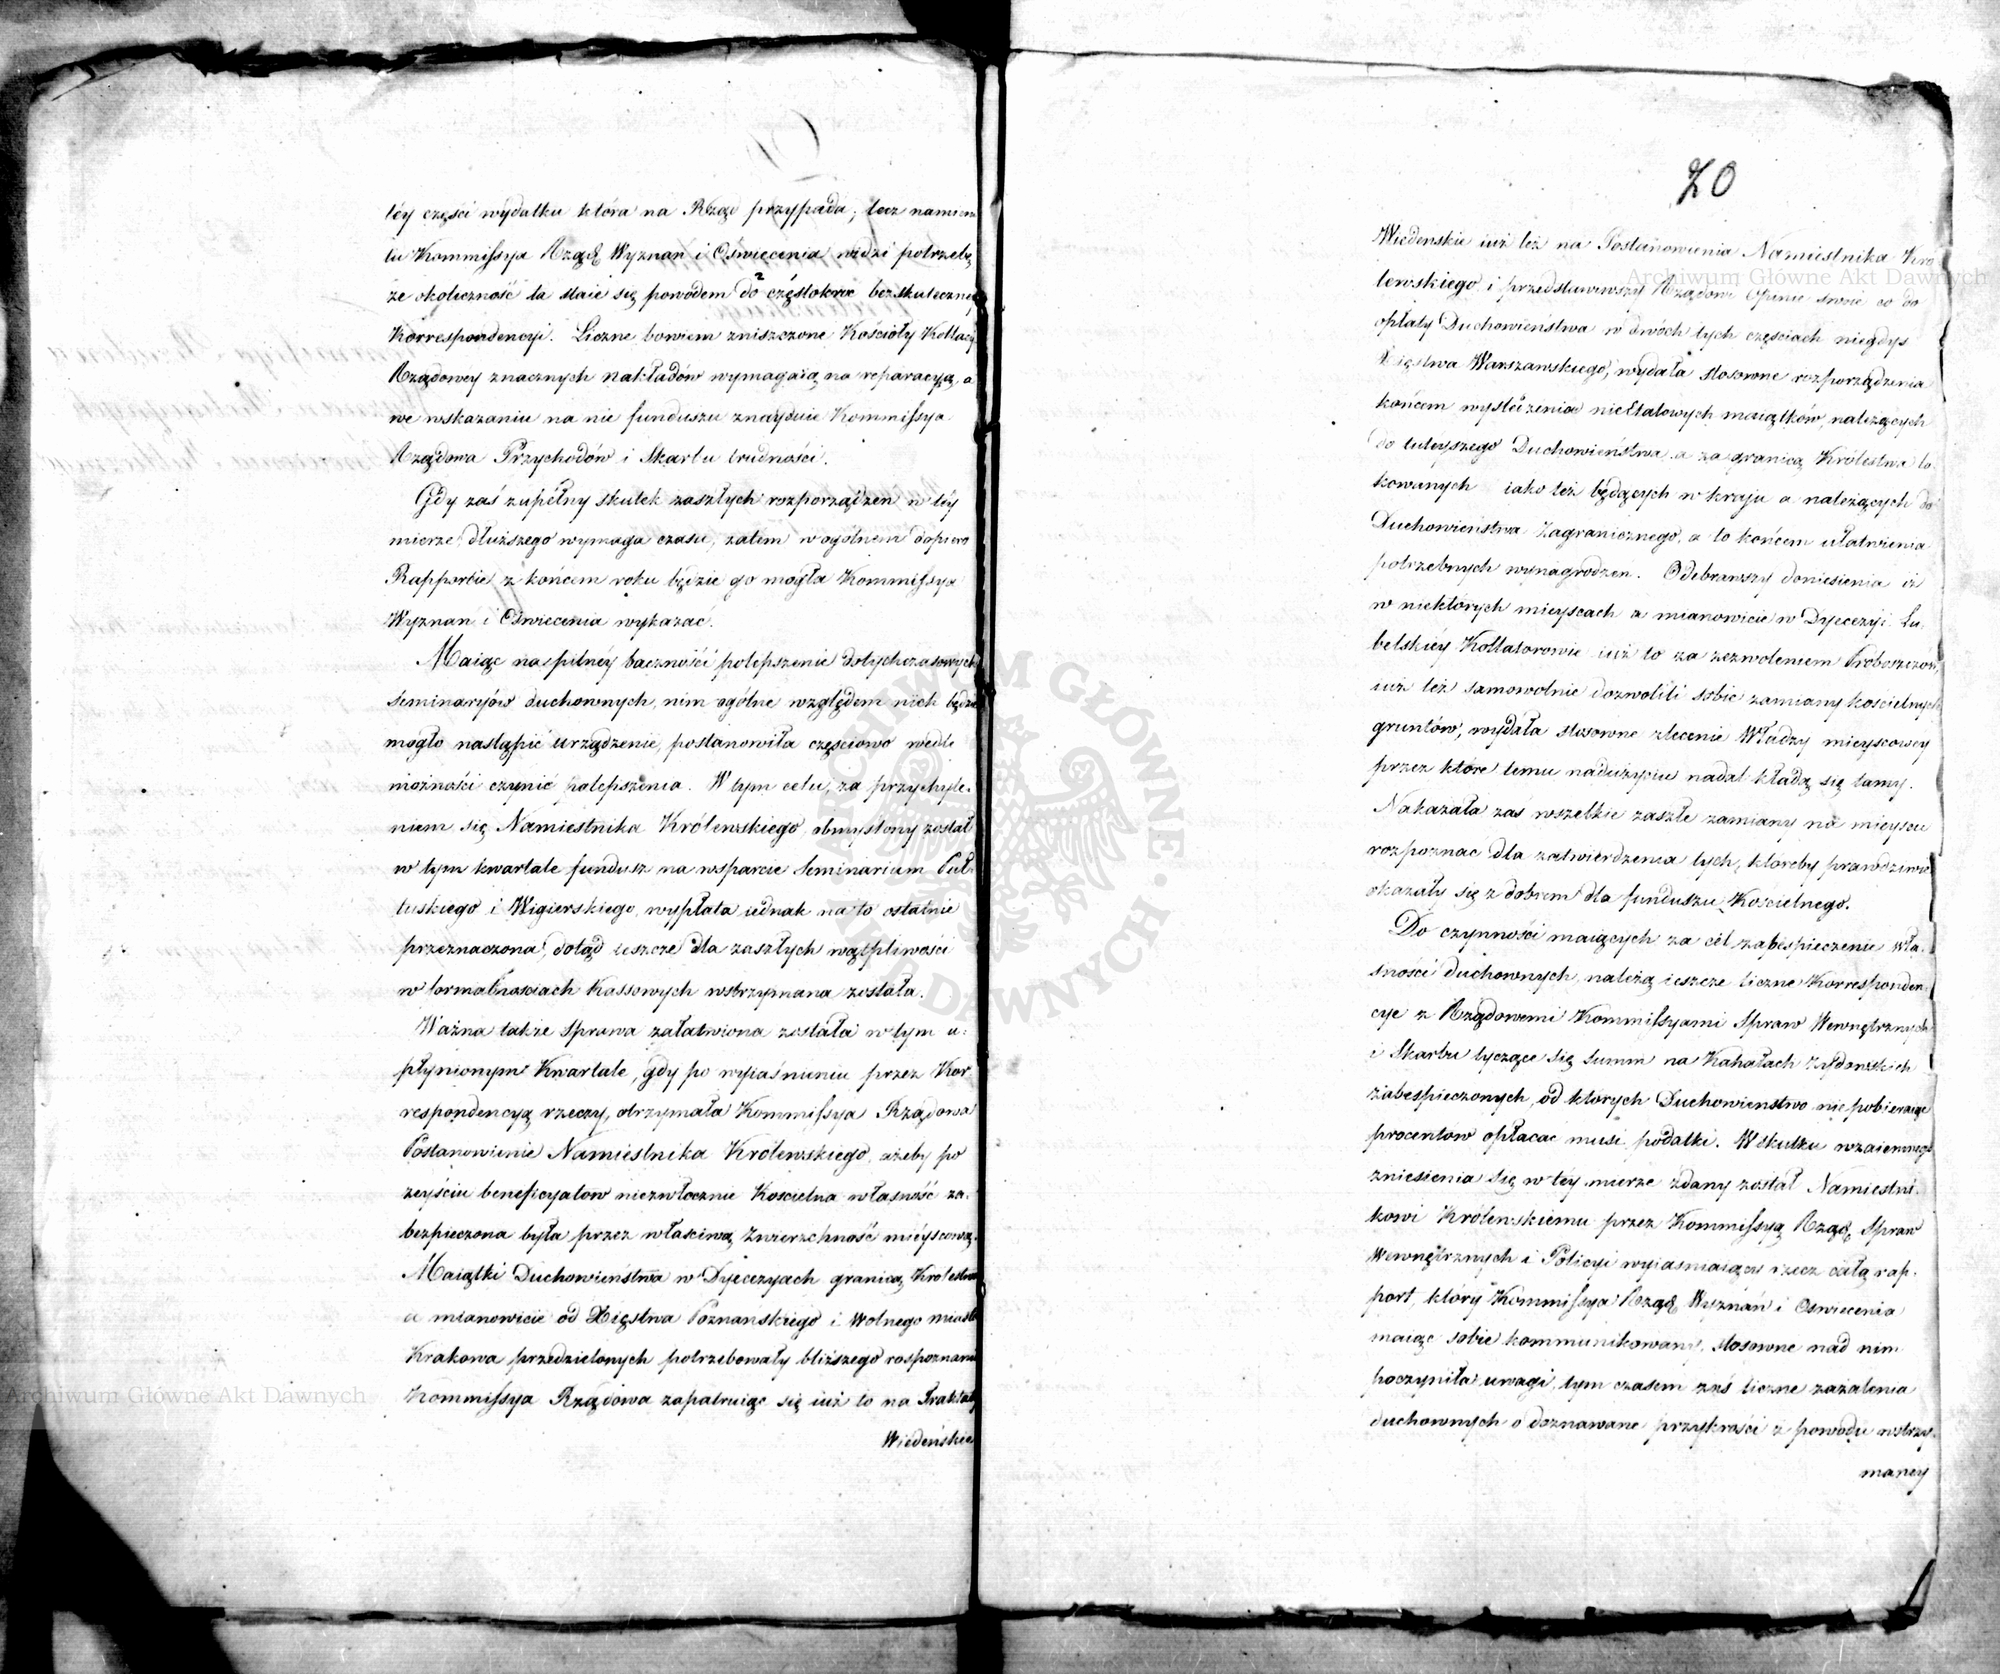 téy części wydatku która na Rząd przypada; lecz namienić
tu Kommissya Rządˢ Wyznań i Oświecenia widzi potrzebę
że okoliczność ta staie się powodem do częstokroć bezskuteczney
Korrespondencyi. Liczne bowiem zniszczone Kościoły Kollacyi
Rządowey znacznych nakładów wymagaią na reparacyą, a
we wskazaniu na nie funduszu znayduie Kommissya
Rządowa Przychodów i Skarbu trudności.
Gdy zaś zupełny skutek zaszłych rozporządzeń w téy
mierze dłuższego wymaga czasu, zatem w ogólnem dopiero
Rapporcie z końcem roku będzie go mogła Kommissya
Wyznań i Oświecenia wykazać.
Maiąc na pilnéy baczności polepszenie dotychczasowych
Seminaryów duchownych, nim ogólne względem nich będzie
mogło nastąpić urządzenie, postanowiła częściowo wedle
możności czynić polepszenia. W tym celu, za przychyle-
niem się Namiestnika Królewskiego, obmyślony został
w tym kwartale fundusz na wsparcie Seminarium Puł-
tuskiego i Wigierskiego, wypłata iednak na to ostatnie
przeznaczona, dotąd ieszcze dla zaszłych wątpliwości
w formalnościach Kassowych wstrzymana została.
Ważna także sprawa załatwiona została w tym u-
płynionym Kwartale, gdy po wyiaśnieniu przez Kor-
respondencyą rzeczy, otrzymała Kommissya Rządowa
Postanowienie Namiestnika Królewskiego, ażeby po
zeyściu beneficyatów niezwłocznie Kościelna własność za-
bezpieczona była przez właściwą Zwierzchność miéyscową.
Maiątki Duchowieństwa w Dyecezyach granicą Królestwa
a mianowicie od Xięstwa Poznańskiego i Wolnego miasta
Krakowa przedzielonych potrzebowały bliższego rospoznania
Kommissya Rządowa zapatruiąc się iuż to na Traktaty
Wiedeńskie
20
Wiedeńskie iuż też na Postanowienia Namiestnika Kró-
lewskiego i przedstawiwszy Rządowi Opinie swoie co do
opłaty Duchowieństwa w dwóch tych częściach niegdyś
Xięstwa Warszawskiego, wydała stosowne rozporządzenia
końcem wyśledzenia nieStałowych maiątków, należących
do tuteyszego Duchowieństwa a za granicą Królestwa lo-
kowanych iako też będących w kraju a należących do
Duchowieństwa Zagranicznego, a to końcem ułatwienia
potrzebnych wynagrodzeń. Odebrawszy doniesienia iż
w niektórych mieyscach a mianowicie w Dyecezyi Lu-
belskiéy Kollatorowie iuż to za zezwoleniem Proboszczów,
iuż też samowolnie dozwolili sobie zamiany kościelnych
gruntów, wydała stosowne zlecenie Władzy mieyscowey
przez które temu nadużyciu nadal kładą się tamy.
Nakazała zaś wszelkie zaszłe zamiany na mieyscu
rozpoznać dla zatwierdzenia tych, któreby prawdziwie
okazały się z dobrem dla funduszu Kościelnego.
Do czynności maiących za cel zabespieczenie wła-
sności duchownych, należą ieszcze liczne Korresponden-
cye z Rządowemi Kommissyami Spraw Wewnętrznych
i Skarbu tyczące się Summ na Kahałach Żydowskich
zabespieczonych, od których Duchowieństwo nie pobieraiąc
procentów opłacać musi podatki. W skutku wzaiemnego
zniesienia się w téy mierze zdany został Namiestni-
kowi Królewskiemu przez Kommissyą Rządˢ Spraw
Wewnętrznych i Policyi wyiaśniaiący rzecz całą rap-
port, który Kommissya Rządˢ Wyznań i Oświecenia
maiąc sobie kommunikowany, stosowne nad nim
poczyniła uwagi, tym czasem zaś liczne zażalenia
duchownych o doznawane przykrości z powodu wstrzy-
maney
Archiwum Główne Akt Dawnych
Archiwum Główne Akt Dawnych
ARCHIWUM GŁÓWNE AKT DAWNYCH